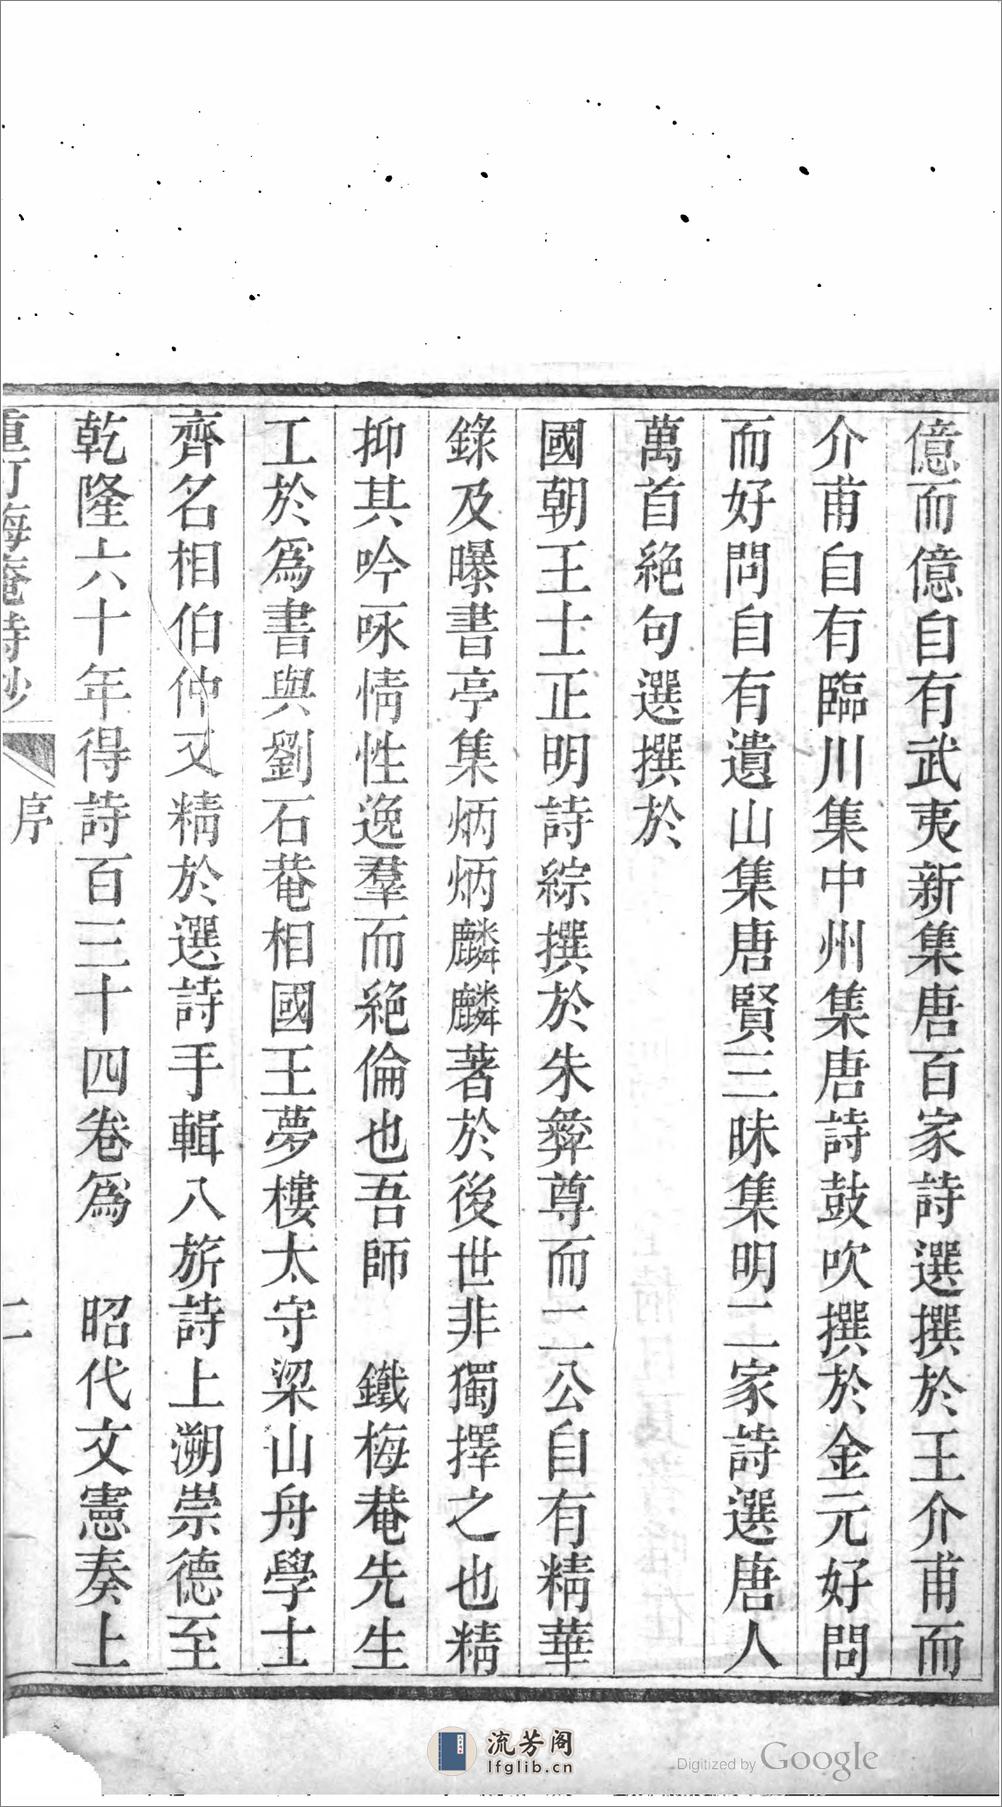 億而億自有武夷新集唐百家詩選撰於王介甫而
介甫自有臨川集中州集唐詩鼓吹撰於金元好問
而好問自有遺山集唐賢三昧集明二家詩選唐人
萬首絕句選撰於
國朝王士正明詩綜撰於朱彝尊而二公自有精華
錄及曝書亭集炳炳麟麟著於後世非獨擇之也精
抑其吟咏情性逸羣而絕倫也吾師　鐵梅菴先生
工於爲書與劉石菴相國王夢樓太守梁山舟學士
齊名相伯仲又精於選詩手輯八旂詩上溯崇德至
乾隆六十年得詩百三十四卷爲　昭代文憲奏上
重訂梅菴詩鈔
序
二
流芳阁
lfglib.cn
Digitized by Google